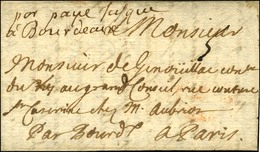 por payé jusque
à Bourdeaux Monsieur
5
Monsieur de Genouillac con.er
du Roy au grand Conseil rue couture
Ste Caterine chez Mr Aubriot
Par Bourd.x A Paris.